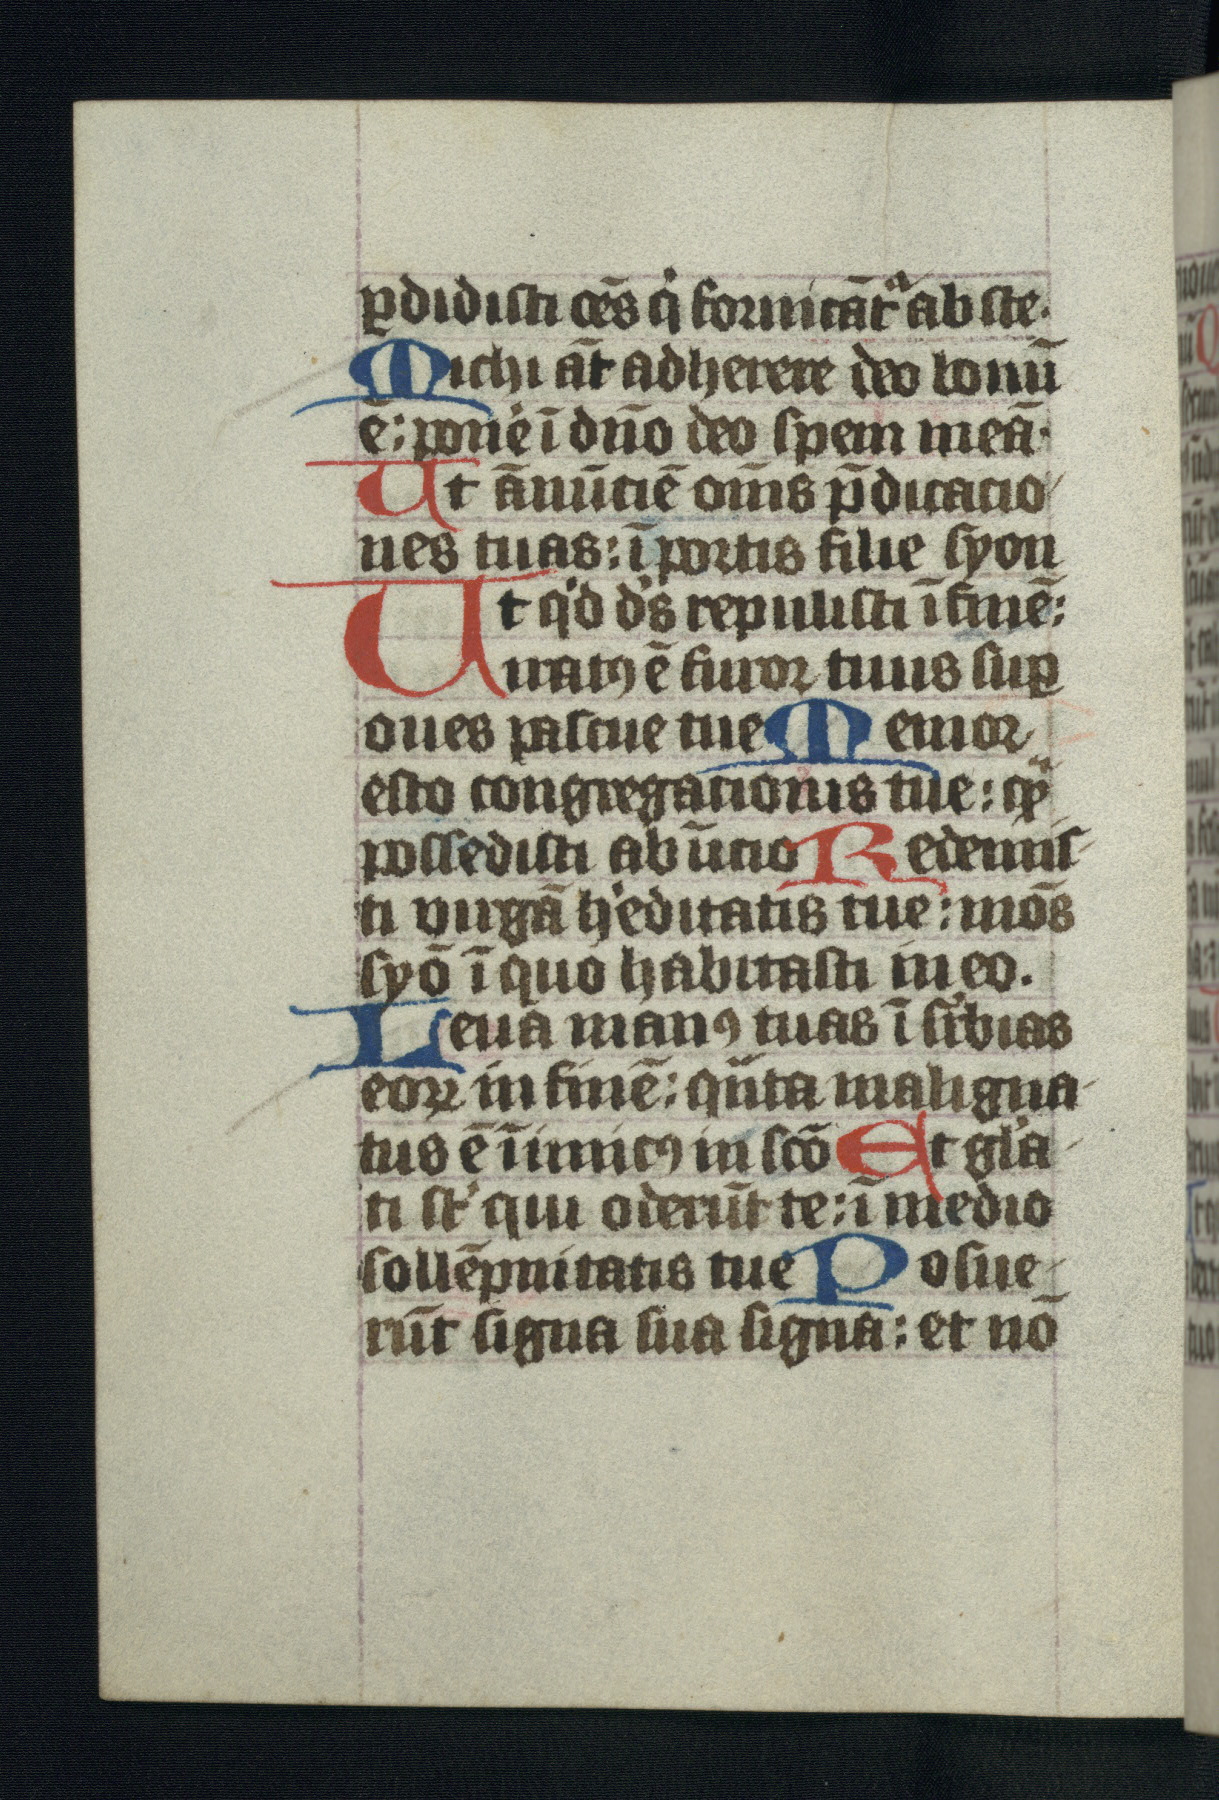 ꝑdidisti oēs qͥ fornicāt᷑ᵃ ab ste.
Michi āt adherere deo bonū
ē: pon̾e ī dn̄o deo spem meā.
Ut ānūciē om̄s p̄dicacio
nes tuas: ī portis filie syon
Ut qͥd dˢs repulisti ī finē:
iratꝰ ē furor tuus suꝑ
oues pascue tue Memor
esto congregacionis tue: qͣ
possedisti ab īicio Redemis
ti virgā h̾editatis tue: mōs
syō ī quo habitasti in eo.
Leua manꝰ tuas ī sͬbias
eoꝝ in finē: qͣnta maligna
tus ē īimicꝰ in scō Et gl̾a
ti st̾ qui oderūt te: ī medio
sollēpnitatis tue Posue
rūt signa sua signa: et nō